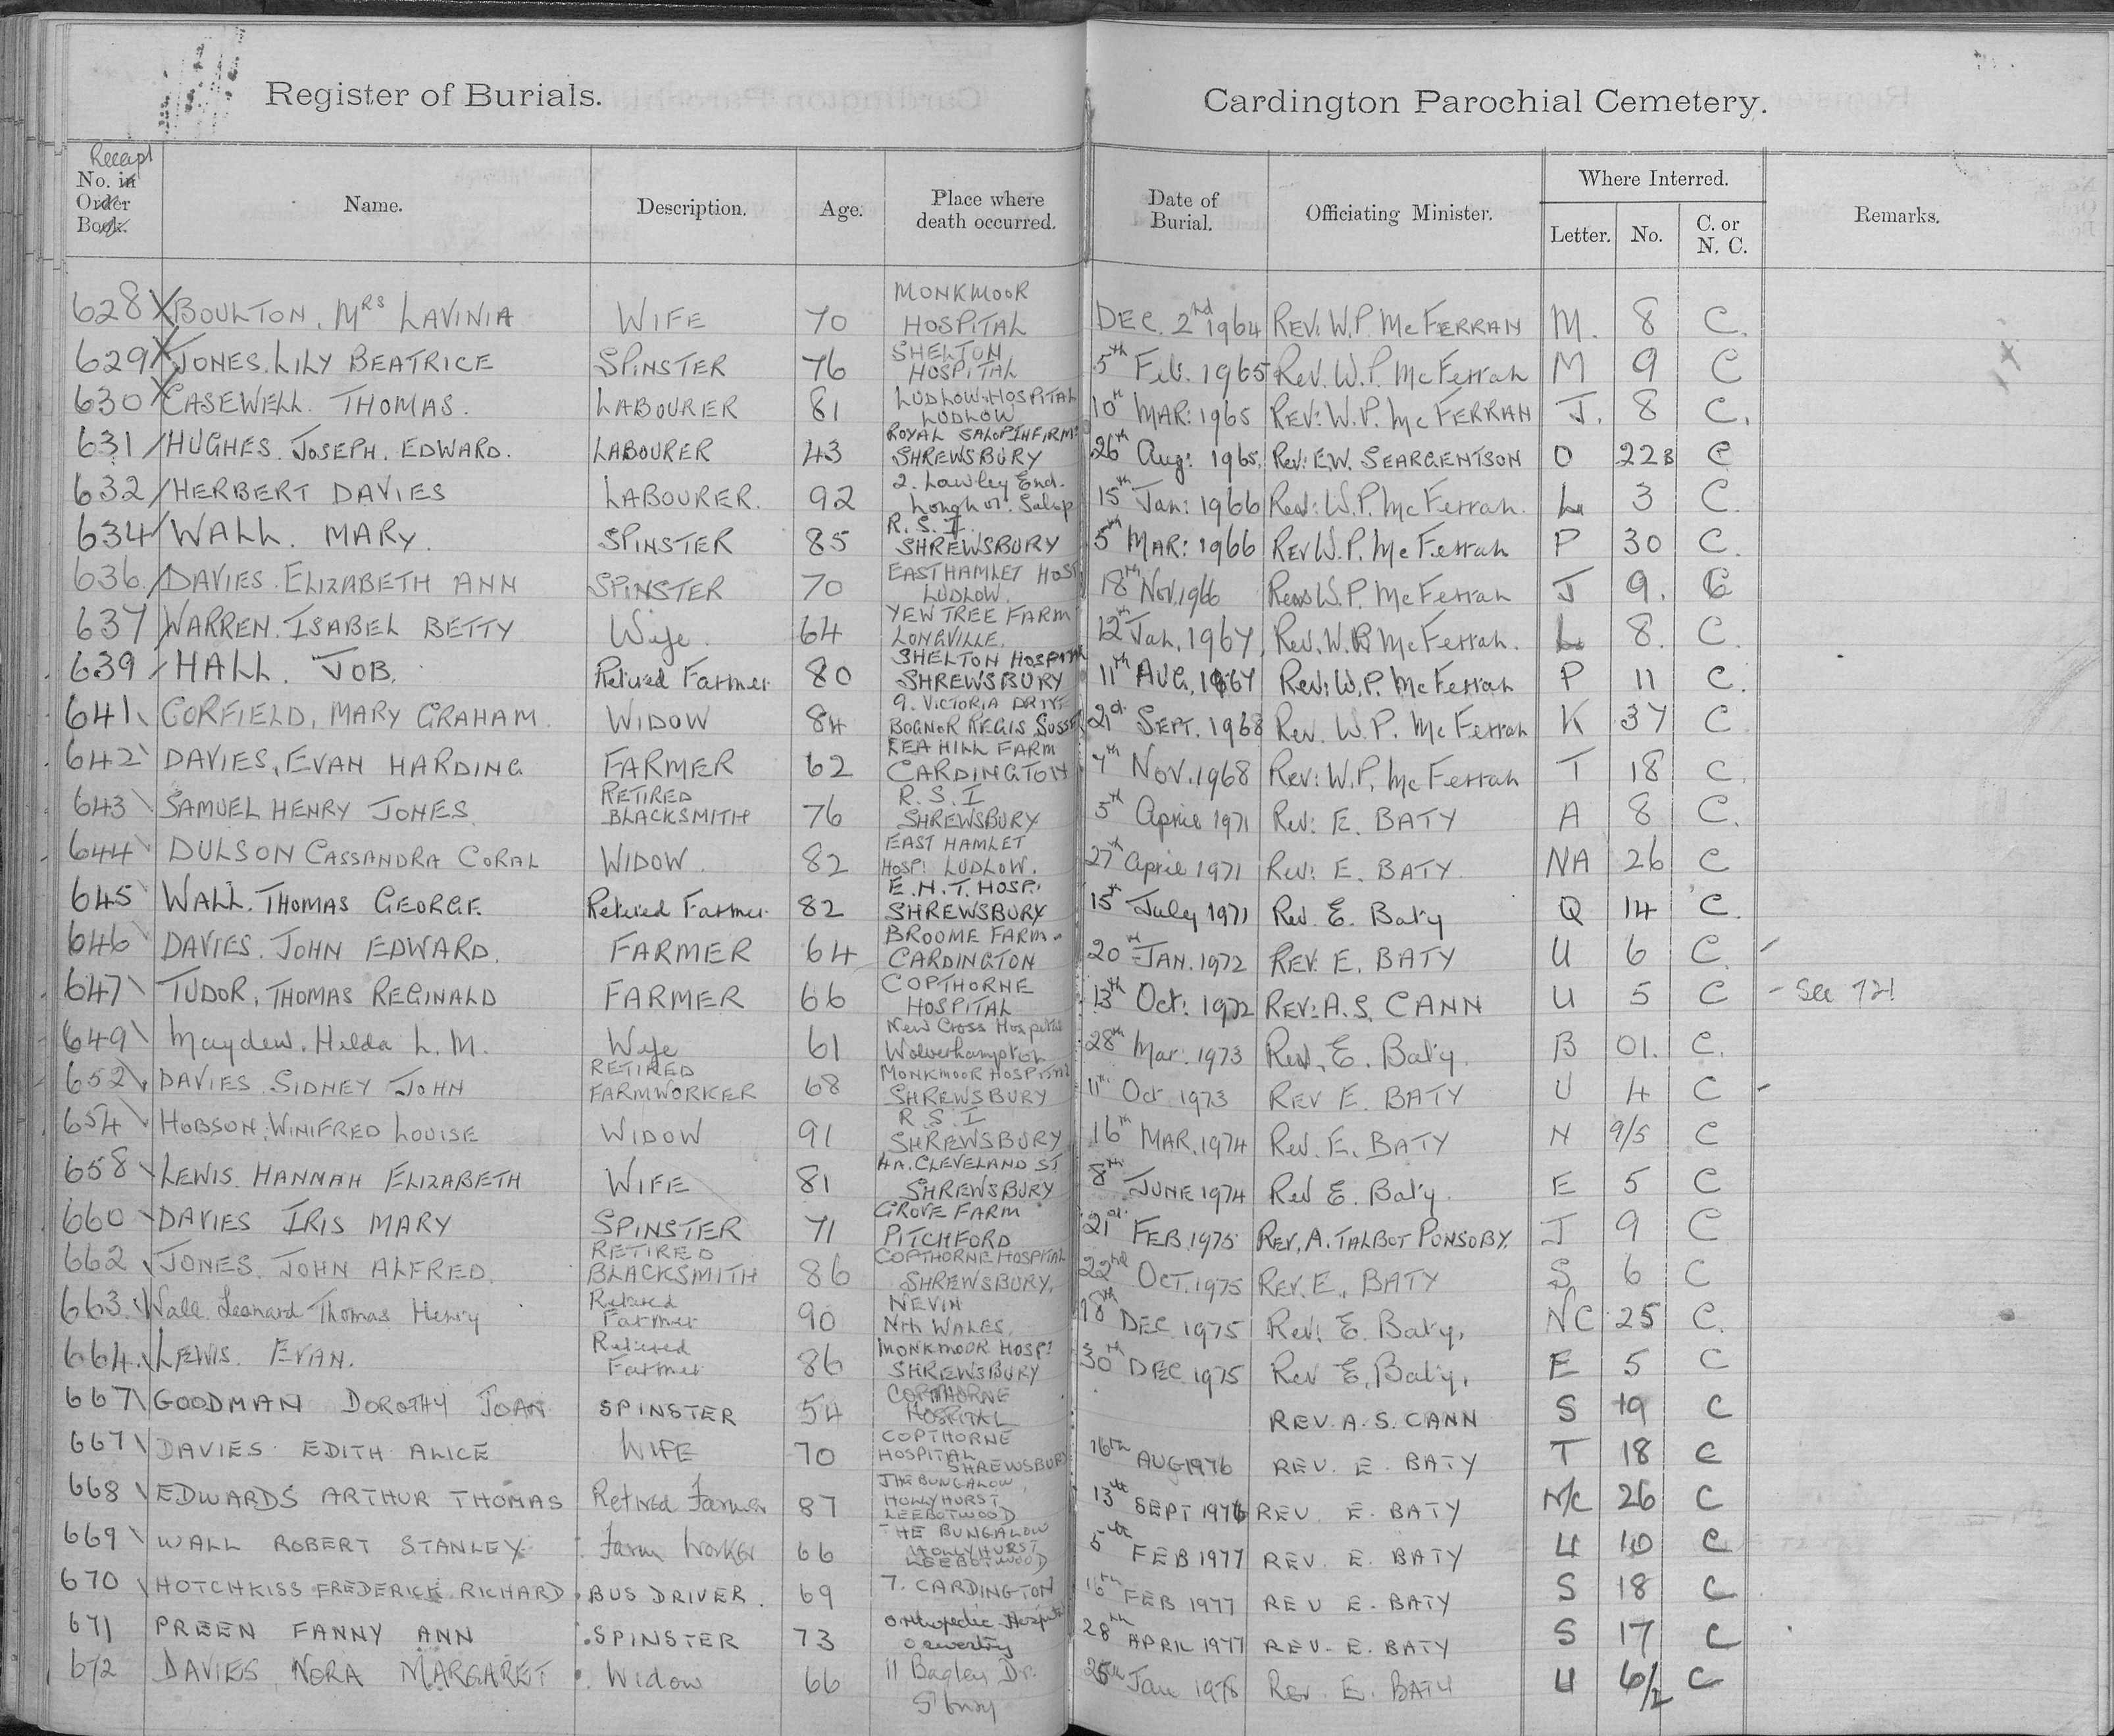 Register of Burials.
Cardington Parochial Cemetery.
Receipt
No. in Order Book. Name. Description. Age. Place where death occurred. Date of Burial. Officiating Minister. Where Interred. Letter. No. C. or N. C. Remarks.
628 X BOULTON. MRS LAVINIA WIFE 70 MONKMOOR HOSPITAL DEC. 2nd 1964 REV: W.P. McFERRAN M. 8 C.
629 X JONES. LILY BEATRICE SPINSTER 76 SHELTON HOSPITAL 5th Feb. 1965 Rev. W.P. McFerran M 9 C
630 X CASEWELL. THOMAS. LABOURER 81 LUDLOW. HOSPITAL LUDLOW 10th MAR: 1965 REV: W.P. McFERRAN J. 8 C.
631 / HUGHES. JOSEPH. EDWARD. LABOURER 43 ROYAL SALOP INFIRM: SHREWSBURY 26th Aug: 1965. Rev: E.W. SEARGENTSON O 22B C
632 / HERBERT DAVIES LABOURER. 92 2. Lawley End. Longnor. Salop 15th Jan: 1966 Rev: W.P. McFerran. L 3 C.
634 / WALL. MARY. SPINSTER 85 R.S.I. SHREWSBURY 5th MAR: 1966 REV W.P. McFerran P 30 C.
636. / DAVIES. ELIZABETH ANN SPINSTER 70 EAST HAMLET HOSP LUDLOW. 18th Nov. 1966 Rev W.P. McFerran J 9. C
637 / WARREN. ISABEL BETTY Wife. 64 YEW TREE FARM LONGVILLE. 12th Jan. 1967. Rev. W.P. McFerran. L 8. C.
639 / HALL. JOB. Retired Farmer 80 SHELTON HOSPITAL SHREWSBURY 11th AUG. 1967 Rev: W.P. McFerran P 11 C.
641 \ CORFIELD, MARY GRAHAM. WIDOW 84 9. VICTORIA DRIVE BOGNOR REGIS SUSSEX 21st SEPT. 1968 Rev. W.P. McFerran K 37 C
642 \ DAVIES, EVAN HARDING FARMER 62 LEA HILL FARM CARDINGTON 7th NOV. 1968 Rev: W.P. McFerran T 18 C.
643 \ SAMUEL HENRY JONES RETIRED BLACKSMITH 76 R.S.I SHREWSBURY 5th April 1971 Rev: E. BATY A 8 C.
644 \ DULSON CASSANDRA CORAL WIDOW. 82 EAST HAMLET HOSP: LUDLOW. 27th April 1971 Rev: E. BATY. NA 26 C
645 \ WALL. THOMAS GEORGE. Retired Farmer. 82 E.N.T. HOSP: SHREWSBURY 15th July 1971 Rev. E. Baty Q 14 C.
646 \ DAVIES. JOHN EDWARD. FARMER 64 BROOME FARM. CARDINGTON 20th JAN. 1972 REV: E. BATY U 6 C.
647 \ TUDOR, THOMAS REGINALD FARMER 66 COPTHORNE HOSPITAL 13th Oct: 1972 REV: A.S. CANN U 5 C - See 721
649 \ Mayden. Hilda L.M. Wife 61 New Cross Hospital Wolverhampton 28th Mar. 1973 Rev. E. Baty. B 01. C.
652 \ DAVIES SIDNEY JOHN RETIRED FARMWORKER 68 MONKMOOR HOSPITAL SHREWSBURY 11th Oct 1973 REV E. BATY U 4 C -
654 \ HOBSON, WINIFRED LOUISE WIDOW 91 R.S.I SHREWSBURY 16th MAR. 1974 Rev. E. BATY N 9/5 C
658 \ LEWIS. HANNAH ELIZABETH WIFE 81 4A. CLEVELAND ST SHREWSBURY 8th JUNE 1974 Rev E. Baty. E 5 C
660 \ DAVIES IRIS MARY SPINSTER 71 GROVE FARM PITCHFORD 21st FEB 1975 REV. A. TALBOT PONSOBY. J 9 C
662 \ JONES. JOHN ALFRED. RETIRED BLACKSMITH 86 COPTHORNE HOSPITAL SHREWSBURY. 22nd OCT. 1975 REV. E. BATY S 6 C
663. \ Wall Leonard Thomas Henry Retired Farmer 90 NEVIN Nth WALES. 18th DEC 1975 Rev: E. Baty. NC 25 C.
664. \ LEWIS. EVAN. Retired Farmer 86 MONKMOOR HOSP: SHREWSBURY 30th DEC 1975 Rev E. Baty. E 5 C
667 \ GOODMAN DOROTHY JOAN SPINSTER 54 COPTHORNE HOSPITAL REV. A.S. CANN S 19 C
667 \ DAVIES EDITH ALICE WIFE 70 COPTHORNE HOSPITAL SHREWSBURY 16th AUG 1976 REV. E. BATY T 18 C
668 \ EDWARDS ARTHUR THOMAS Retired Farmer 87 THE BUNGALOW HOLLYHURST LEEBOTWOOD 13th SEPT 1976 REV. E. BATY N/C 26 C
669 \ WALL ROBERT STANLEY Farm Worker 66 THE BUNGALOW HOLLYHURST LEEBOTWOOD 5th FEB 1977 REV. E. BATY U 10 C
670 \ HOTCHKISS FREDERICK RICHARD. BUS DRIVER. 69 7. CARDINGTON 16th FEB 1977 REV E. BATY S 18 C
671 PREEN FANNY ANN SPINSTER 73 Orthopedic Hospital Oswestry 28th APRIL 1977 REV. E. BATY S 17 C
672 DAVIES NORA MARGARET Widow 66 11 Bagley Dr. S'bury 25th Jan 1978 Rev. E. BATY U 6/2 C